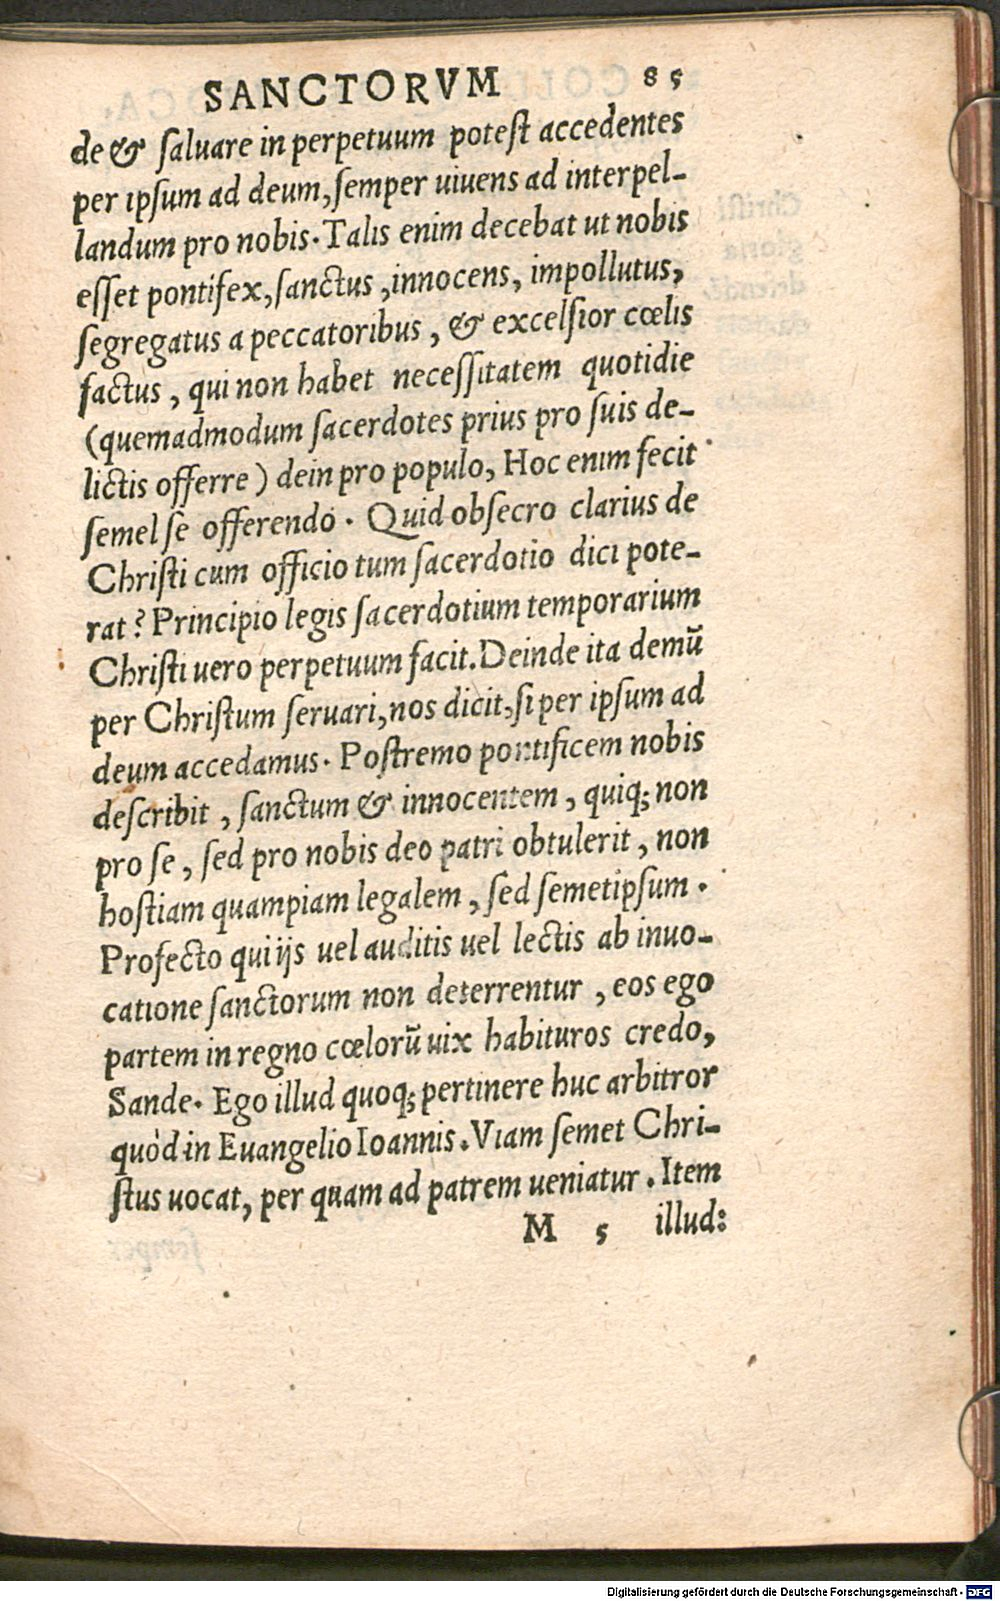 SANCTORVM 85
de & saluare in perpetuum potest accedentes
per ipsum ad deum, semper uiuens ad interpel-
landum pro nobis. Talis enim decebat ut nobis
esset pontifex, sanctus, innocens, impollutus,
segregatus a peccatoribus, & excelsior cœlis
factus, qui non habet necessitatem quotidie
(quemadmodum sacerdotes prius pro suis de-
lictis offerre) dein pro populo, Hoc enim fecit
semel se offerendo. Quid obsecro clarius de
Christi cum officio tum sacerdotio dici pote-
rat? Principio legis sacerdotium temporarium
Christi uero perpetuum facit. Deinde ita demū
per Christum seruari, nos dicit, si per ipsum ad
deum accedamus. Postremo pontificem nobis
describit, sanctum & innocentem, quiq; non
pro se, sed pro nobis deo patri obtulerit, non
hostiam quampiam legalem, sed semetipsum.
Profecto qui ijs uel auditis uel lectis ab inuo-
catione sanctorum non deterrentur, eos ego
partem in regno cœlorū uix habituros credo,
Sande. Ego illud quoq; pertinere huc arbitror
quòd in Euangelio Ioannis. Viam semet Chri-
stus uocat, per quam ad patrem ueniatur. Item
M 5 illud:
Digitalisierung gefördert durch die Deutsche Forschungsgemeinschaft - DFG